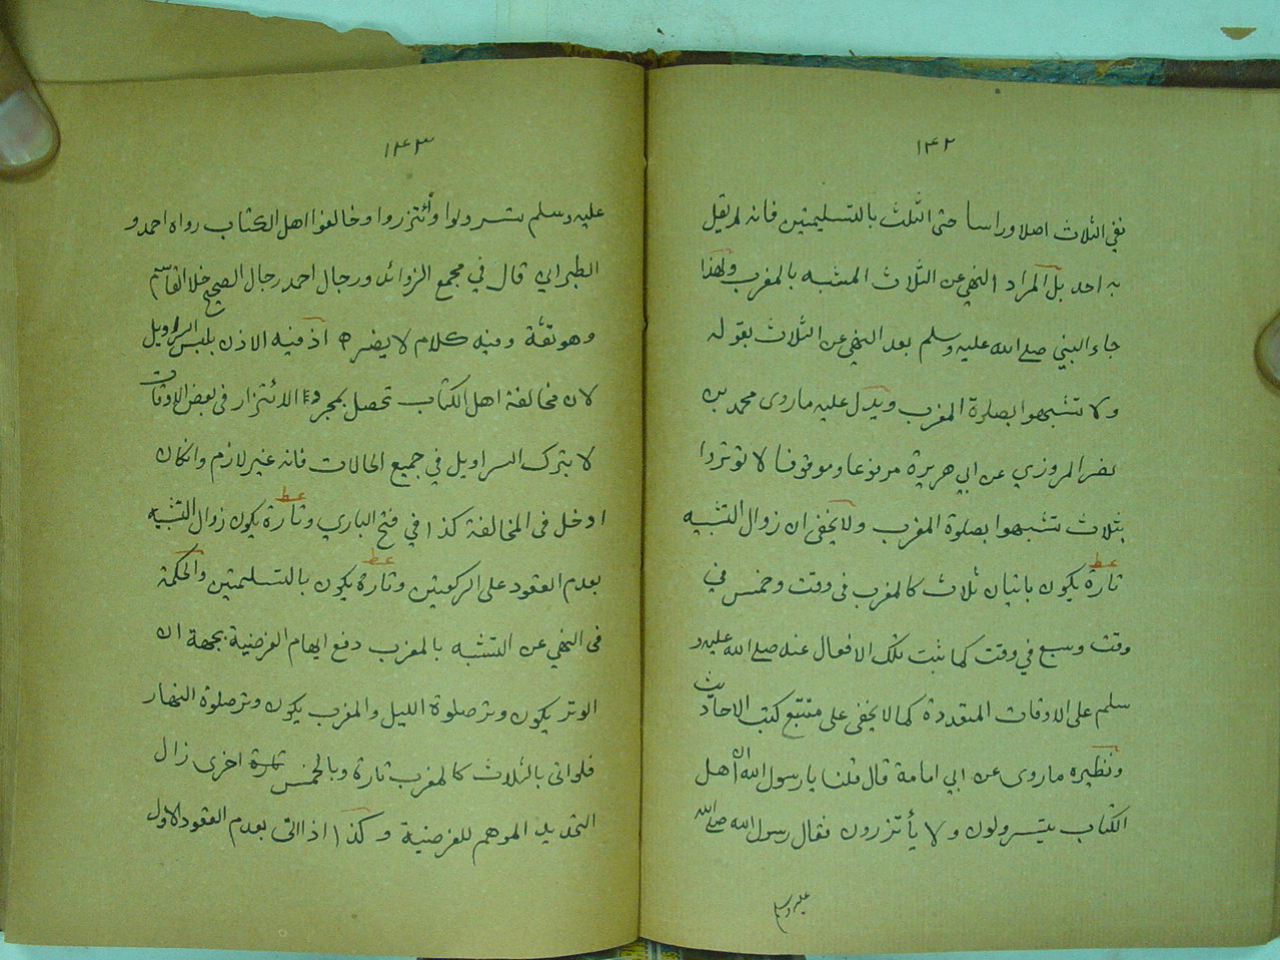 ١٤٢
نفي الثلاث اصلا وراسا حتى الثلث بالتسليمتين فانه لم يقل
به احد بل المراد النهي عن الثلاث المشبه بالمغرب ولهذا
جاء النبي صلى الله عليه وسلم بعد النهي عن الثلاث بقوله
ولا تشبهوا بصلوة المغرب ويدل عليه ما روى محمد بن
نصر المروزي عن ابي هريرة مرفوعا وموقوفا لا توتروا
بثلاث تشبهوا بصلوة المغرب ولا يخفى ان زوال التشبيه
تارة يكون باتيان ثلاث كالمغرب في وقت وخمس في
وقت وسبع في وقت كما ثبت تلك الافعال عنه صلى الله عليه و
سلم على الاوقات المتعددة كما لا يخفى على متتبع كتب الاحاديث
ونظيره ما روى عن ابي امامة قال قلنا يا رسول الله ان اهل
الكتاب يتسرولون ولا يأتزرون فقال رسول الله صلى الله
عليه وسلم
١٤٣
عليه وسلم تسرولوا وأتزروا وخالفوا اهل الكتاب رواه احمد و
الطبراني قال في مجمع الزوائد ورجال احمد رجال الصحيح خلا القاسم
وهو ثقة وفيه كلام لا يضره اذ فيه الاذن بلبس السراويل
لان مخالفة اهل الكتاب تحصل بمجرد الائتزار في بعض الاوقات
لا بترك السراويل في جميع الحالات فانه غير لازم وان كان
ادخل في المخالفة كذا في فتح الباري وتارة يكون زوال التشبيه
بعدم العقود على الركعتين وتارة يكون بالتسليمتين والحكمة
في النهي عن التشبه بالمغرب دفع ايهام الفرضية بجهة ان
الوتر يكون وتر صلوة الليل والمغرب يكون وتر صلوة النهار
فلو اتى بالثلاث كالمغرب تارة وبالخمس تارة اخرى زال
التحديد الموهم للفرضية وكذا اذا اتى بعدم العقود الاول